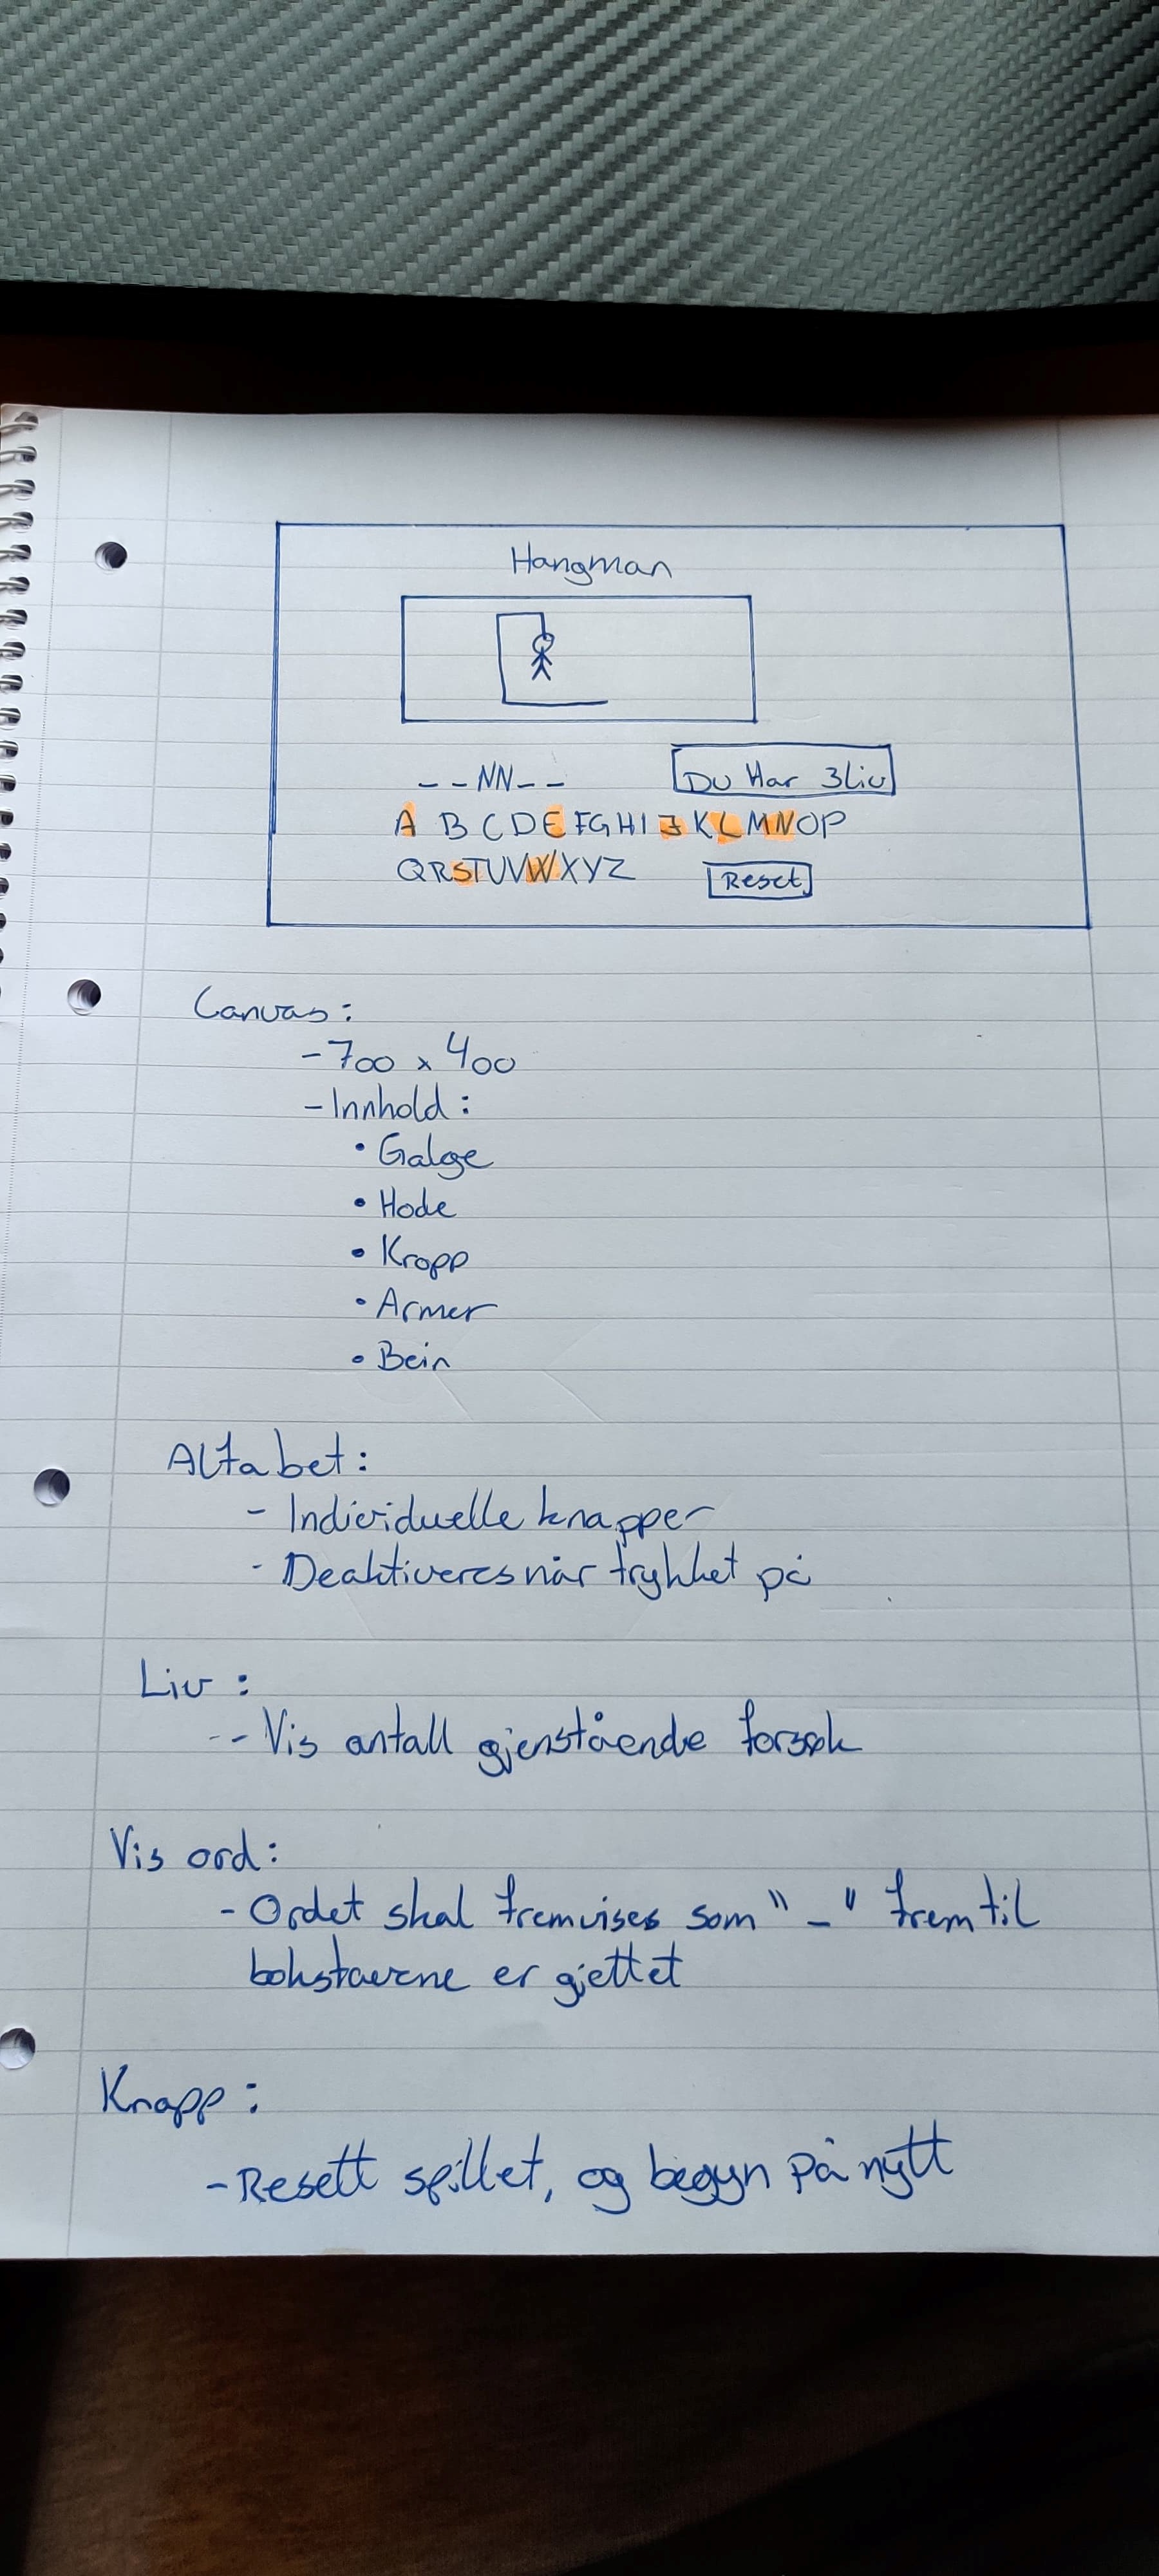 Hangman
_ _ NN _ _
Du Har 3Liv
A B C D E F G H I J K L M N O P
Q R S T U V W X Y Z
Reset
Canvas:
- 700 x 400
- Innhold:
• Galge
• Hode
• Kropp
• Armer
• Bein
Alfabet:
- Individuelle knapper
- Deaktiveres når trykket på
Liv:
-- Vis antall gjenstående forsøk
Vis ord:
- Ordet skal fremvises som "_" frem til
bokstavene er gjettet
Knapp:
- Resett spillet, og begyn på nytt